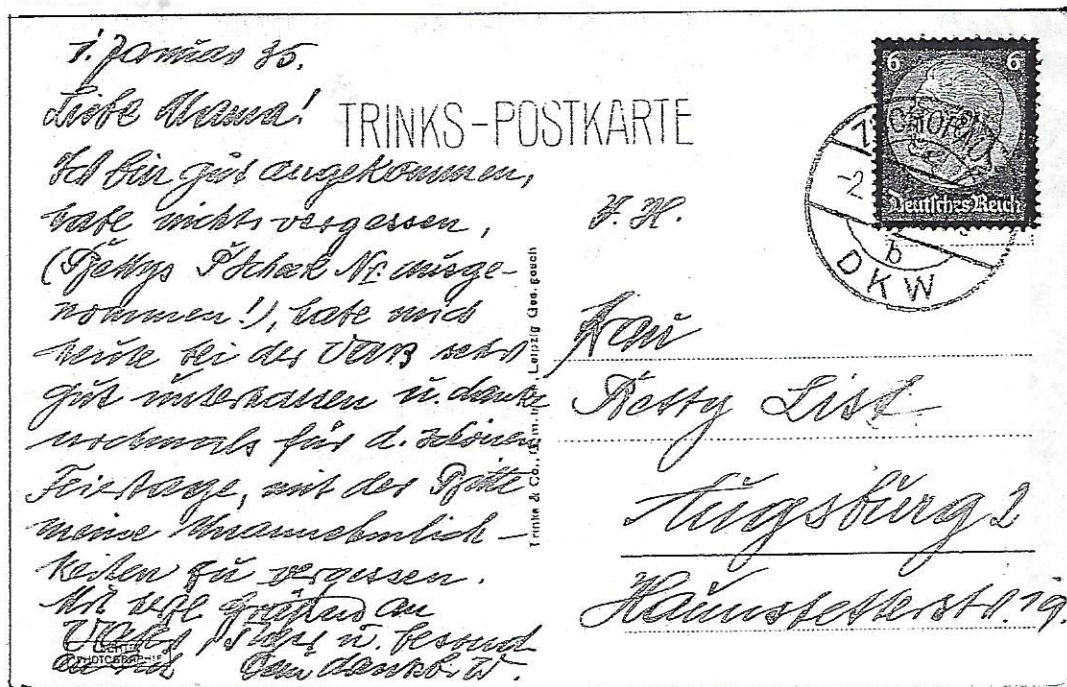 1. Januar 35.
Liebe Mama!
Ich bin gut angekommen,
habe nichts vergessen,
(Bettys Scheck Nr. ausge-
nommen!), habe mich
heute bei der sehr
gut unterhalten u. danke
nochmals für d. schönen
Feiertage, mit der Bitte
meine Unannehmlich-
keiten zu vergessen.
Mit herzl. Grüßen an
Vater, u. besond
Dein dankb. W.
TRINKS-POSTKARTE
Trinks & Co., Leipzig Ges. gesch
PHOTOGRAPHIE
6 6
Deutsches Reich
ZSCHOPAU
-2.
b
DKW
Frau
Betty List
Augsburg 2
Haunstetterstr. 19.